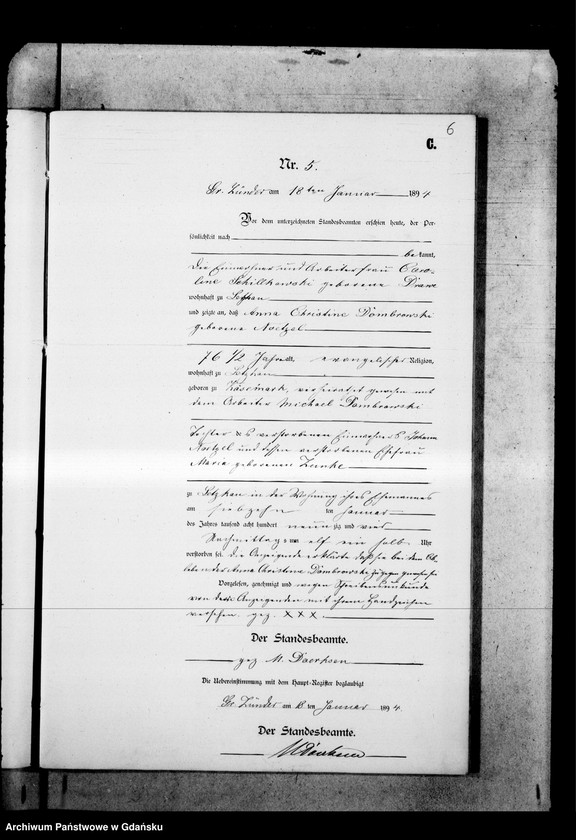 6
C.
Nr. 5.
Gr. Zünder am 18 ten Januar 1894
Vor dem unterzeichneten Standesbeamten erschien heute, der Per-
sönlichkeit nach
bekannt,
die Einwohner und Arbeiterfrau Caro-
line Schillkowski geborene Drawe
wohnhaft zu Letzkau
und zeigte an, daß Anna Christine Dombrowski
geborene Noetzel
76 1/2 Jahre alt, evangelischer Religion,
wohnhaft zu Letzkau
geboren zu Käsemark, verheirathet gewesen mit
dem Arbeiter Michael Dombrowski
Tochter des verstorbenen Einwohners Johann
Noetzel und dessen verstorbenen Ehefrau
Maria geborenen Zunke
zu Letzkau in der Wohnung ihres Ehemannes
am siebzehn ten Januar
des Jahres tausend acht hundert neunzig und vier
Nachmittags um elf ein halb Uhr
verstorben sei. Die Anzeigende erklärte daß sie bei dem Ab-
leben der Anna Christine Dombrowski zugegen gewesen sei
Vorgelesen, genehmigt und wegen Schreibensunkunde
von der Anzeigenden mit ihrem Handzeichen
versehen. gez. XXX.
Der Standesbeamte.
gez M. Doerksen
Die Uebereinstimmung mit dem Haupt-Register beglaubigt
Gr. Zünder am 18 ten Januar 1894.
Der Standesbeamte.
MDoerksen
Archiwum Państwowe w Gdańsku